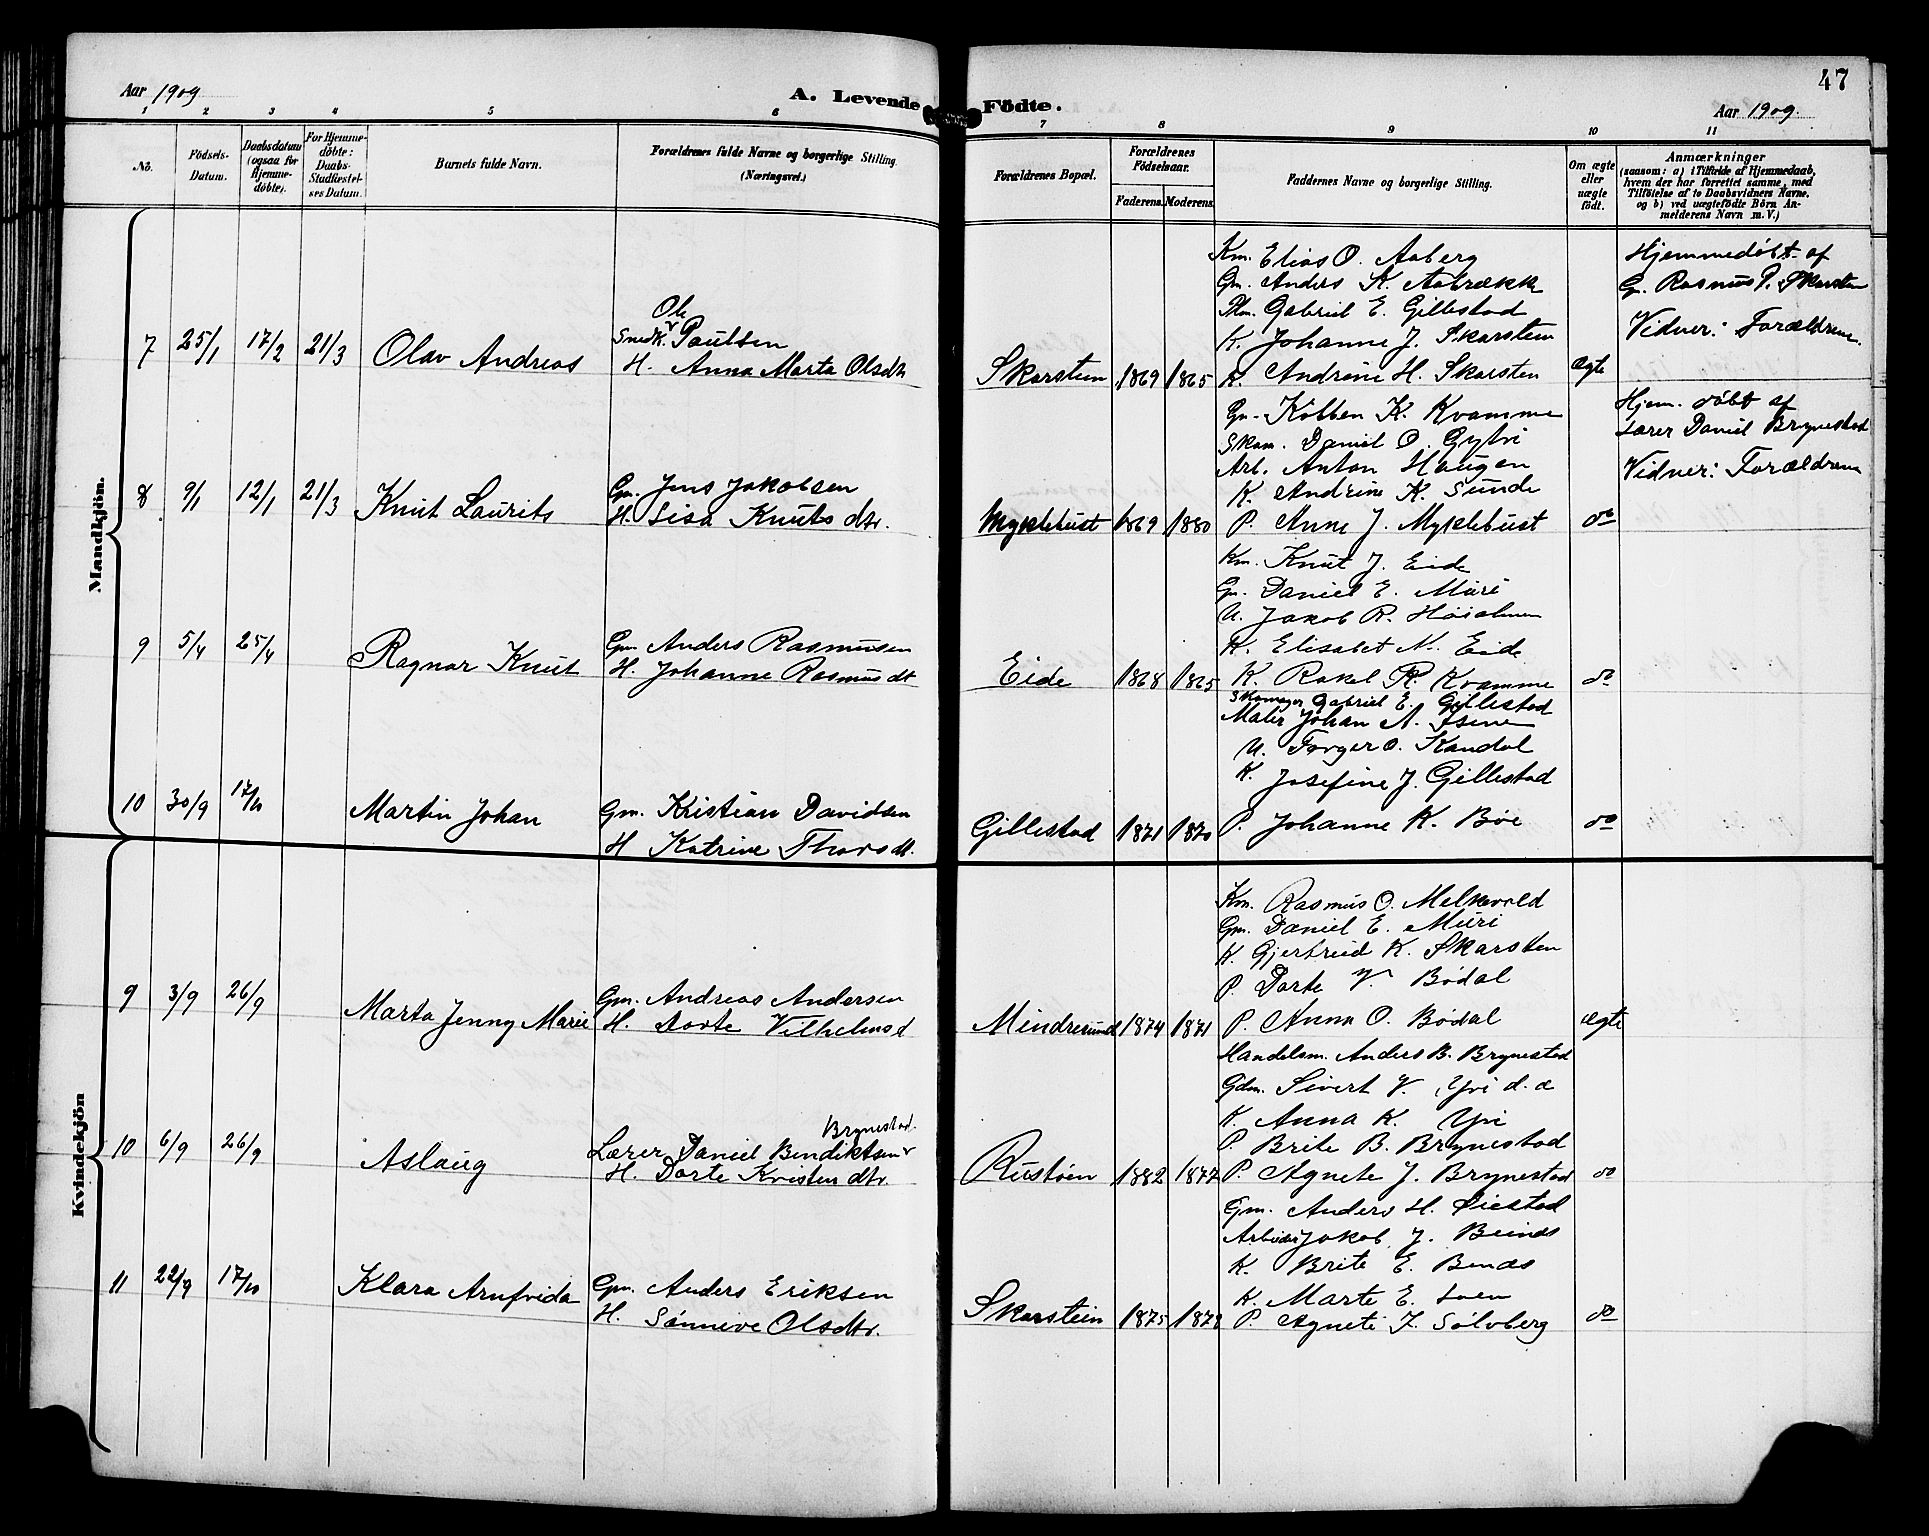 47
Aar 1909
A. Levende Födte.
Aar 1909.
1 2 3 4 5 6 7 8 9 10 11
No.
Födsels-
Datum.
Daabsdatum
(ogsaa for
Hjemme-
döbte).
For Hjemme-
döbte:
Daabs-
Stadfæstel-
ses Datum.
Barnets fulde Navn.
Forældrenes fulde Navne og borgerlige Stilling.
(Næringsvei.)
Forældrenes Bopæl.
Forældrenes
Födselsaar.
Faderens.
Moderens.
Faddernes Navne og borgerlige Stilling.
Om ægte
eller
uægte
födt.
Anmærkninger
(saasom: a) i Tilfælde af Hjemmedaab,
hvem der har forrettet samme, med
Tilföielse af to Daabsvidners Navne.
og b) ved uægtefödte Börn An-
melderens Navn m. V.)
Mandkjön.
7 25/1 17/2 21/3 Olav Andreas
Ole
Smedk. Paulsen
H. Anna Marta Olsdtr
Skarstein 1869 1865
Km. Elias O. Aaberg
Gm. Anders K. Aabrække
Plm. Gabriel E. Gillestad
K. Johanne J. Skarstein
K. Andrine H. Skarsten
ægte
Hjemmedøbt af
G. Rasmus P. Skarsten
Vidner: Forældrene.
8 9/1 12/1 21/3 Knut Laurits
Gm. Jens Jakobsen
H. Lisa Knutsdtr.
Myklebust 1869 1880
Gm. Kolben K. Kvamme
Skom. Daniel O. Gytri
Arb. Anton Haugen
K. Andrine K. Sunde
P. Anne J. Myklebust
do
Hjem. døbt af
Lærer Daniel Brynestad
Vidner: Forældrene
9 5/4 25/4 Ragnar Knut
Gm Anders Rasmusen
H. Johanne Rasmusdt
Eide 1868 1865
Km. Knut J. Eide
Gm. Daniel E. Muri
U. Jakob R. Høialmen
K. Elisabet N. Eide
K. Rakel R. Kvamme
do
10 30/9 17/10 Martin Johan
Gm. Kristian Davidsen
H Katrine Thorsdt.
Gillestad 1871 1870
Skomager Gabriel E. Gillestad
Maler Johan A. Isene
U. Torger O. Kandal
K. Josefine J. Gillestad
P. Johanne K. Bøe
do
Kvindekjön
9 3/9 26/9 Marta Jenny Marie
Gm. Andreas Andersen
H. Dorte Vilhelmsd
Mindresund 1874 1871
Km. Rasmus O. Melkevold
Gm. Daniel E. Muri
K. Gjertrud K. Skarsten
P. Dorte V. Bødal
P. Anna O. Bødal
ægte
10 6/9 26/9 Aslaug
Brynestad.
Lærer Daniel Bendiktsen
H. Dorte Kristendtr.
Rustøen 1882 1877
Handelsm. Anders B. Brynestad
Gdm. Sivert V. Yri d. æ
K. Anna K. Yri
P. Brite B. Brynestad
P. Agnete J. Brynestad
do
11 22/9 17/10 Klara Arnfrida
Gm. Anders Eriksen
H. Sønnive Olsdtr.
Skarstein 1875 1879
Gm. Anders H. Øiestad
Arbeider Jakob J. Beinds
K. Brite E. Bends
K. Marte E. Loen
P. Agnete I. Sølvberg
do